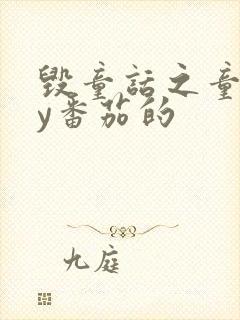 毁童话之童
y番茄的
九庭